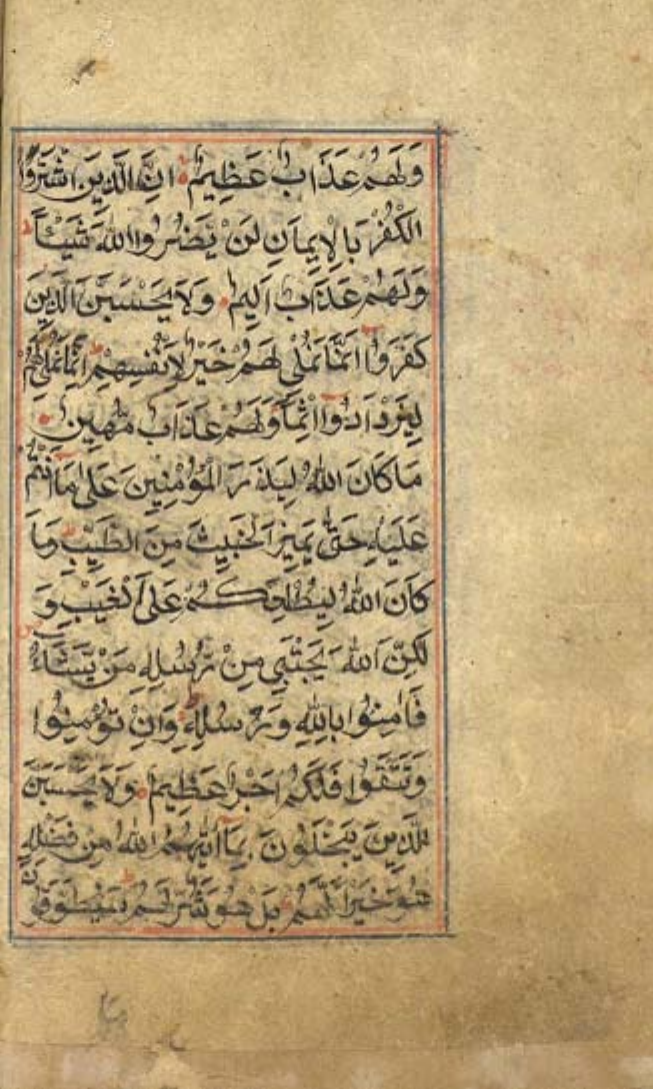 وَلَهُمْ عَذَابٌ عَظِيمٌ اِنَّ الَّذِينَ اشْتَرَوُا
الْكُفْرَ بِالْاِيمَانِ لَنْ يَضُرُّوا اللّٰهَ شَيْئًا
وَلَهُمْ عَذَابٌ اَلِيمٌ وَلَا يَحْسَبَنَّ الَّذِينَ
كَفَرُوا اَنَّمَا نُمْلِي لَهُمْ خَيْرٌ لِاَنْفُسِهِمْ اِنَّمَا نُمْلِي لَهُمْ
لِيَزْدَادُوا اِثْمًا وَلَهُمْ عَذَابٌ مُّهِينٌ
مَا كَانَ اللّٰهُ لِيَذَرَ الْمُؤْمِنِينَ عَلٰى مَا اَنْتُمْ
عَلَيْهِ حَتّٰى يَمِيزَ الْخَبِيثَ مِنَ الطَّيِّبِ وَمَا
كَانَ اللّٰهُ لِيُطْلِعَكُمْ عَلَى الْغَيْبِ وَ
لٰكِنَّ اللّٰهَ يَجْتَبِي مِنْ رُّسُلِهِ مَنْ يَّشَاءُ
فَاٰمِنُوا بِاللّٰهِ وَرُسُلِهِ وَاِنْ تُؤْمِنُوا
وَتَتَّقُوا فَلَكُمْ اَجْرٌ عَظِيمٌ وَلَا يَحْسَبَنَّ
الَّذِينَ يَبْخَلُونَ بِمَا اٰتٰيهُمُ اللّٰهُ مِنْ فَضْلِهِ
هُوَ خَيْرًا لَّهُمْ بَلْ هُوَ شَرٌّ لَّهُمْ سَيُطَوَّقُونَ